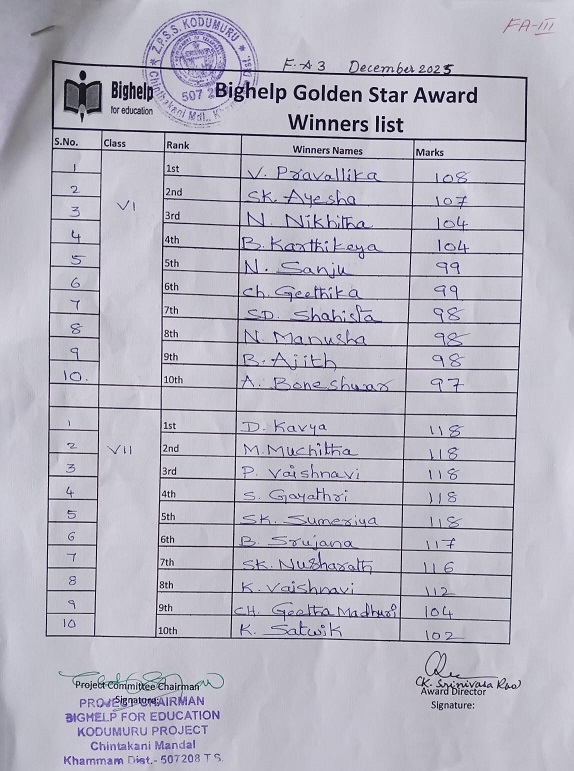 FA-III
Z.P.S.S. KODUMURU
Chintakani Mdl.,
507 2
F.A 3 December 2025
Bighelp
for education
Bighelp Golden Star Award
Winners list
S.No. Class Rank Winners Names Marks
1 VI 1st V. Pravallika 108
2 2nd SK. Ayesha 107
3 3rd N. Nikhitha 104
4 4th B. Karthikeya 104
5 5th N. Sanju 99
6 6th Ch. Geethika 99
7 7th SD. Shahista 98
8 8th N. Manusha 98
9 9th B. Ajith 98
10. 10th A. Boneshwar 97
1 VII 1st D. Kavya 118
2 2nd M. Muchitha 118
3 3rd P. Vaishnavi 118
4 4th S. Gayathri 118
5 5th SK. Sumeriya 118
6 6th B. Srujana 117
7 7th SK. Nusharath 116
8 8th K. Vaishnavi 112
9 9th CH. Geetha Madhuri 104
10 10th K. Satwik 102
Project Committee Chairman
Signature:
PROJECT CHAIRMAN
BIGHELP FOR EDUCATION
KODUMURU PROJECT
Chintakani Mandal
Khammam Dist.- 507208 T.S.
CK. Srinivasa Rao
Award Director
Signature: